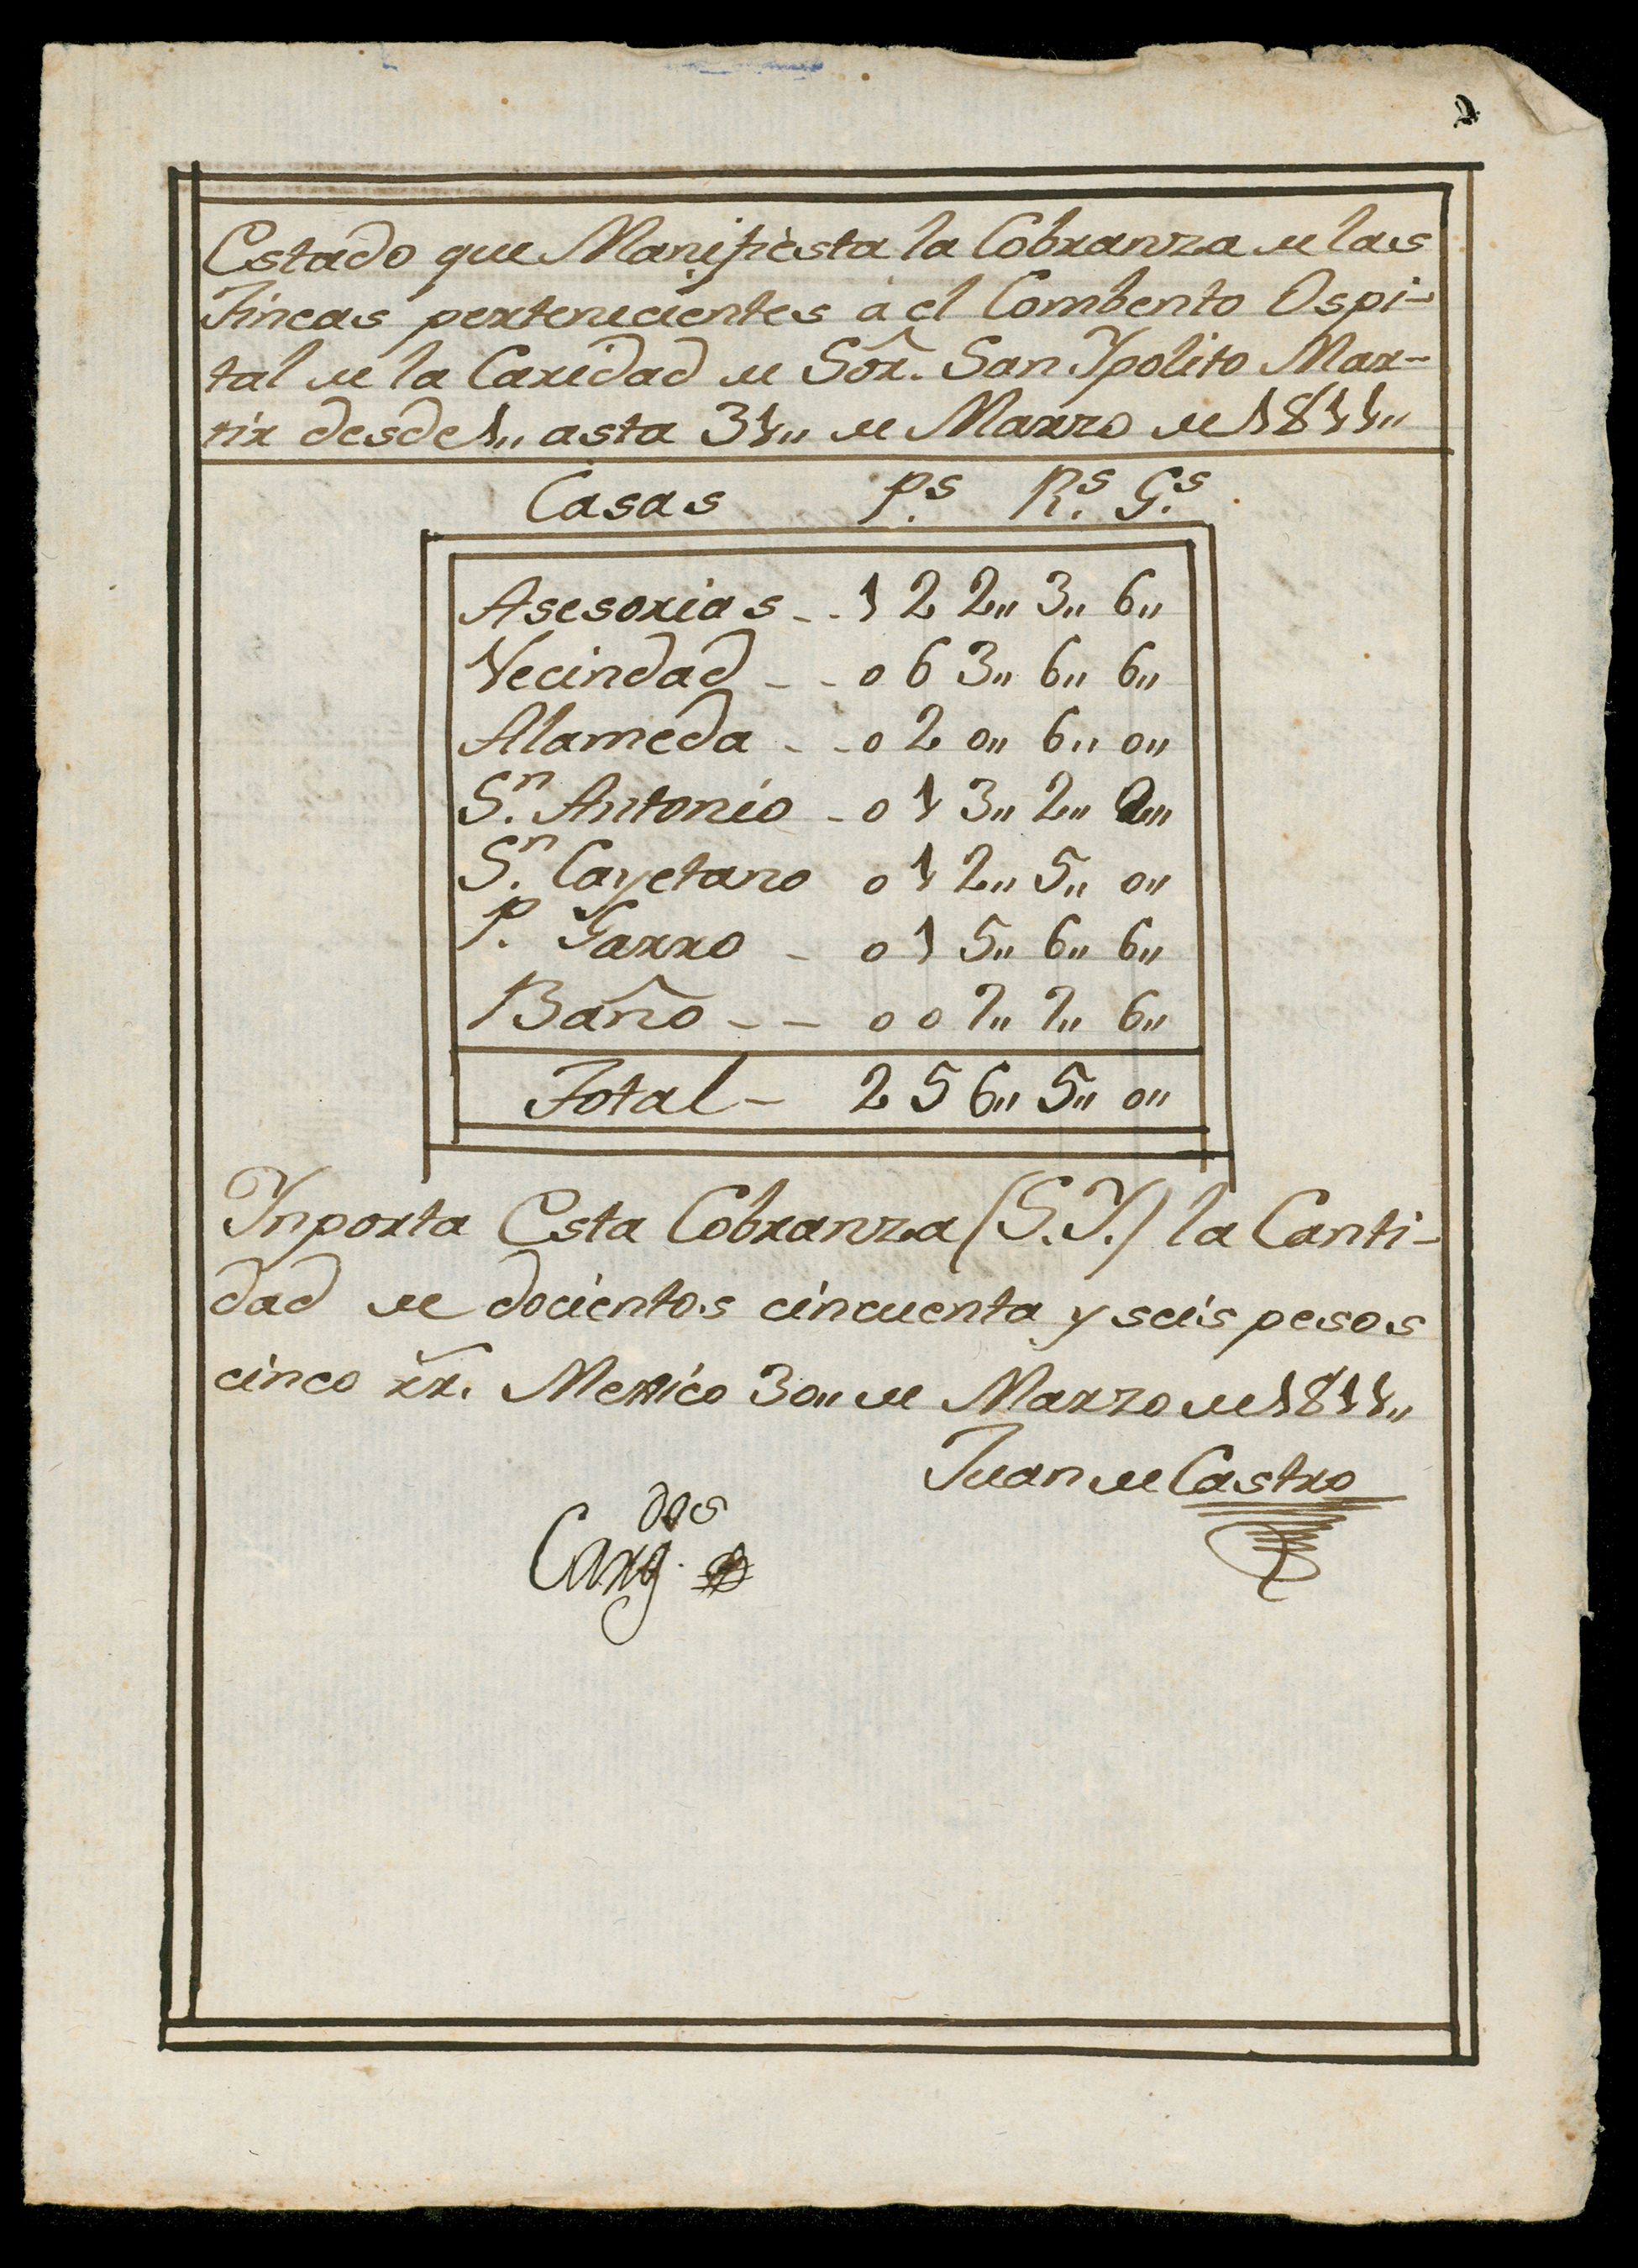 Estado que Manifiesta la Cobranza de las
Fincas pertenecientes á el Combento Ospi-
tal de la Caridad de Sõr. San Ypolito Mar-
tir desde 1,, asta 31,, de Marzo de 1811,,
Casas P.s R.s G.s
Asesorias - - 1 2 2,, 3,, 6,,
Vecindad - - 0 6 3,, 6,, 6,,
Alameda - - 0 2 0,, 6,, 0,,
S.n Antonio - 0 1 3,, 2,, 0,,
S.n Cayetano 0 1 2,, 5,, 0,,
P. Garro - 0 1 5,, 6,, 6,,
Baño - - 0 0 7,, 7,, 6,,
Total - 2 5 6,, 5,, 0,,
Ynporta Esta Cobranza (S.Y.) la Canti-
dad de docientos cincuenta y seis pesos
cinco rr̃. Mexico 30,, de Marzo de 1811,,
Juan de Castro
Carg.dos